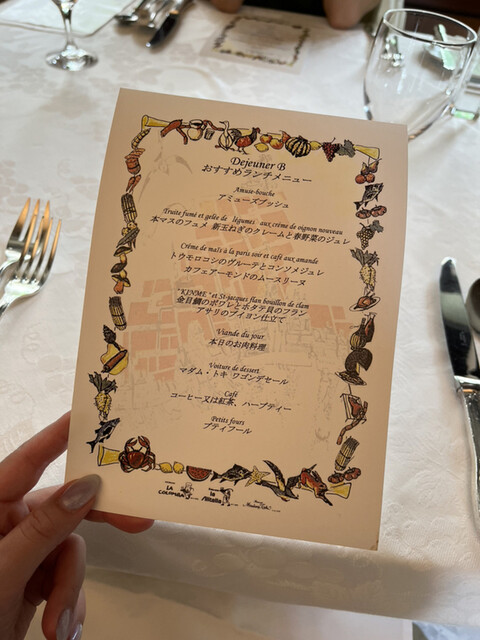 Dejeuner B
おすすめランチメニュー
Amuse-bouche
アミューズブッシュ
Truite fumé et gelée de ¨légumes¨ aux crème de oignon nouveau
本マスのフュメ 新玉ねぎのクレームと春野菜のジュレ
Crème de maïs à la paris soir et café aux amande
トウモロコシのヴルーテとコンソメジュレ
カフェアーモンドのムースリーヌ
"KINME" et St-jacques flan bouillon de clam
金目鯛のポワレとホタテ貝のフラン
アサリのブイヨン仕立て
Viande du jour
本日のお肉料理
Voiture de dessert
マダム・トキ ワゴンデセール
Café
コーヒー又は紅茶、ハーブティー
Petits fours
プティフール
LA COLOMBA